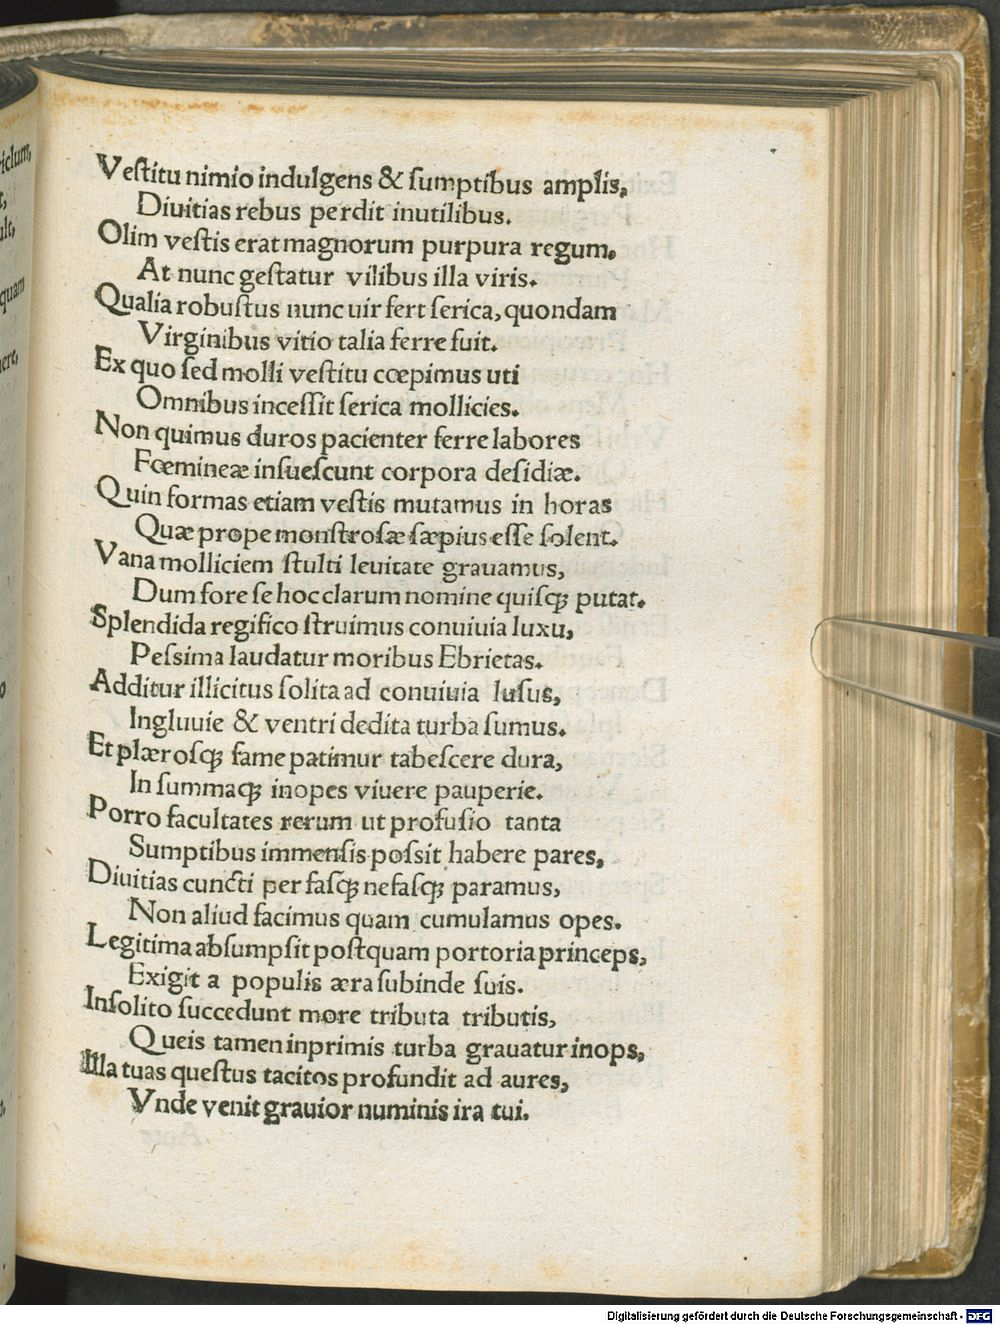 Veſtitu nimio indulgens & ſumptibus amplis,
Diuitias rebus perdit inutilibus.
Olim veſtis erat magnorum purpura regum.
At nunc geſtatur vilibus illa viris.
Qualia robuſtus nunc uir fert ſerica, quondam
Virginibus vitio talia ferre fuit.
Ex quo ſed molli veſtitu cœpimus uti
Omnibus inceſſit ſerica mollicies.
Non quimus duros pacienter ferre labores
Fœmineæ inſueſcunt corpora deſidiæ.
Quin formas etiam veſtis mutamus in horas
Quæ prope monſtroſæ ſæpius eſſe ſolent.
Vana molliciem ſtulti leuitate grauamus,
Dum fore ſe hoc clarum nomine quiſqꝫ putat.
Splendida regifico ſtruimus conuiuia luxu,
Peſsima laudatur moribus Ebrietas.
Additur illicitus ſolita ad conuiuia luſus,
Ingluuie & ventri dedita turba ſumus.
Et plæroſqꝫ fame patimur tabeſcere dura,
In ſummaqꝫ inopes viuere pauperie.
Porro facultates rerum ut profuſio tanta
Sumptibus immenſis poſsit habere pares,
Diuitias cuncti per faſqꝫ nefaſqꝫ paramus,
Non aliud facimus quam cumulamus opes.
Legitima abſumpſit poſtquam portoria princeps,
Exigit a populis æra ſubinde ſuis.
Inſolito ſuccedunt more tributa tributis,
Queis tamen inprimis turba grauatur inops,
Illa tuas queſtus tacitos profundit ad aures,
Vnde venit grauior numinis ira tui.
Digitalisierung gefördert durch die Deutsche Forschungsgemeinschaft - DFG